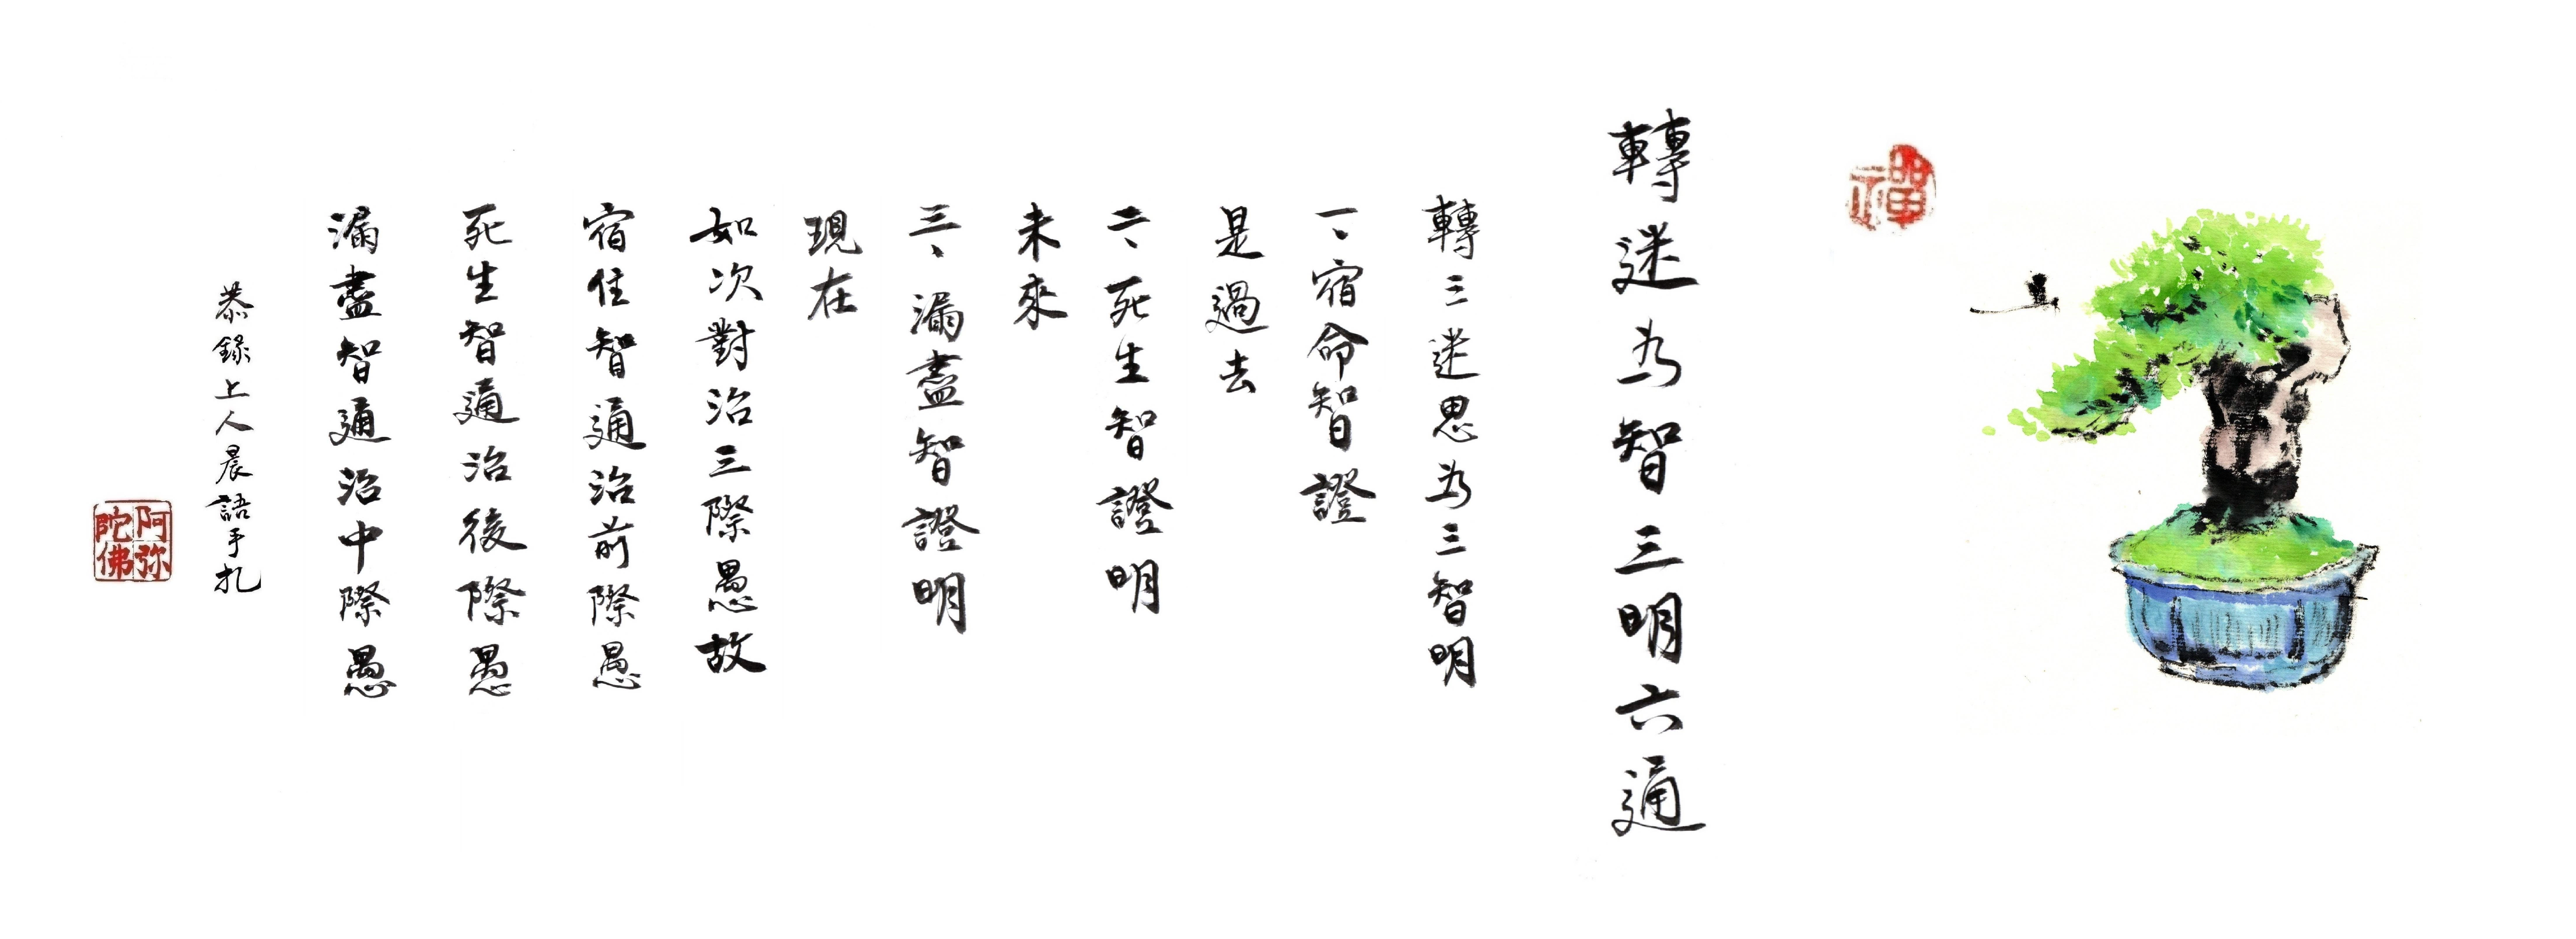 禪
轉迷為智三明六通
轉三迷思為三智明
一、宿命智證
是過去
二、死生智證明
未來
三、漏盡智證明
現在
如次對治三際愚故
宿住智通治前際愚
死生智通治後際愚
漏盡智通治中際愚
恭錄上人晨語手札
阿弥陀佛